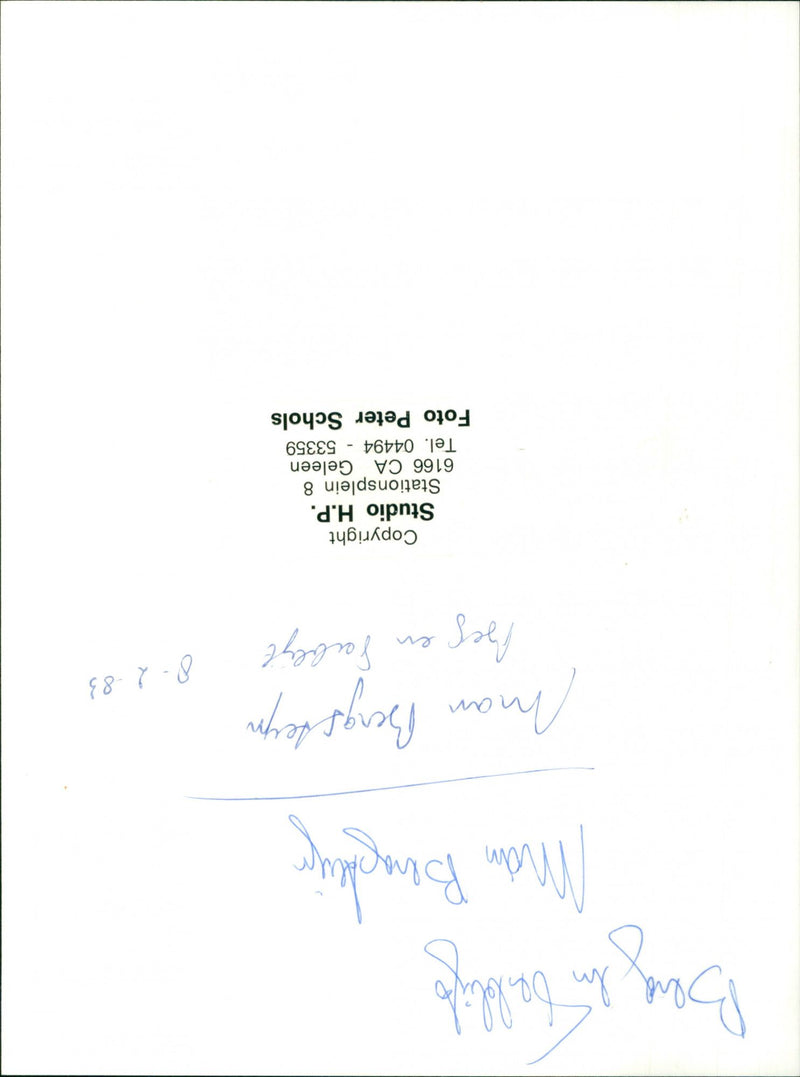 Berg en Terblijt
Man Bergsteyn
Man Bergsteyn
Berg en Terblijt
8-2-83
Copyright
Studio H.P.
Stationsplein 8
6166 CA Geleen
Tel. 04494 - 53359
Foto Peter Schols